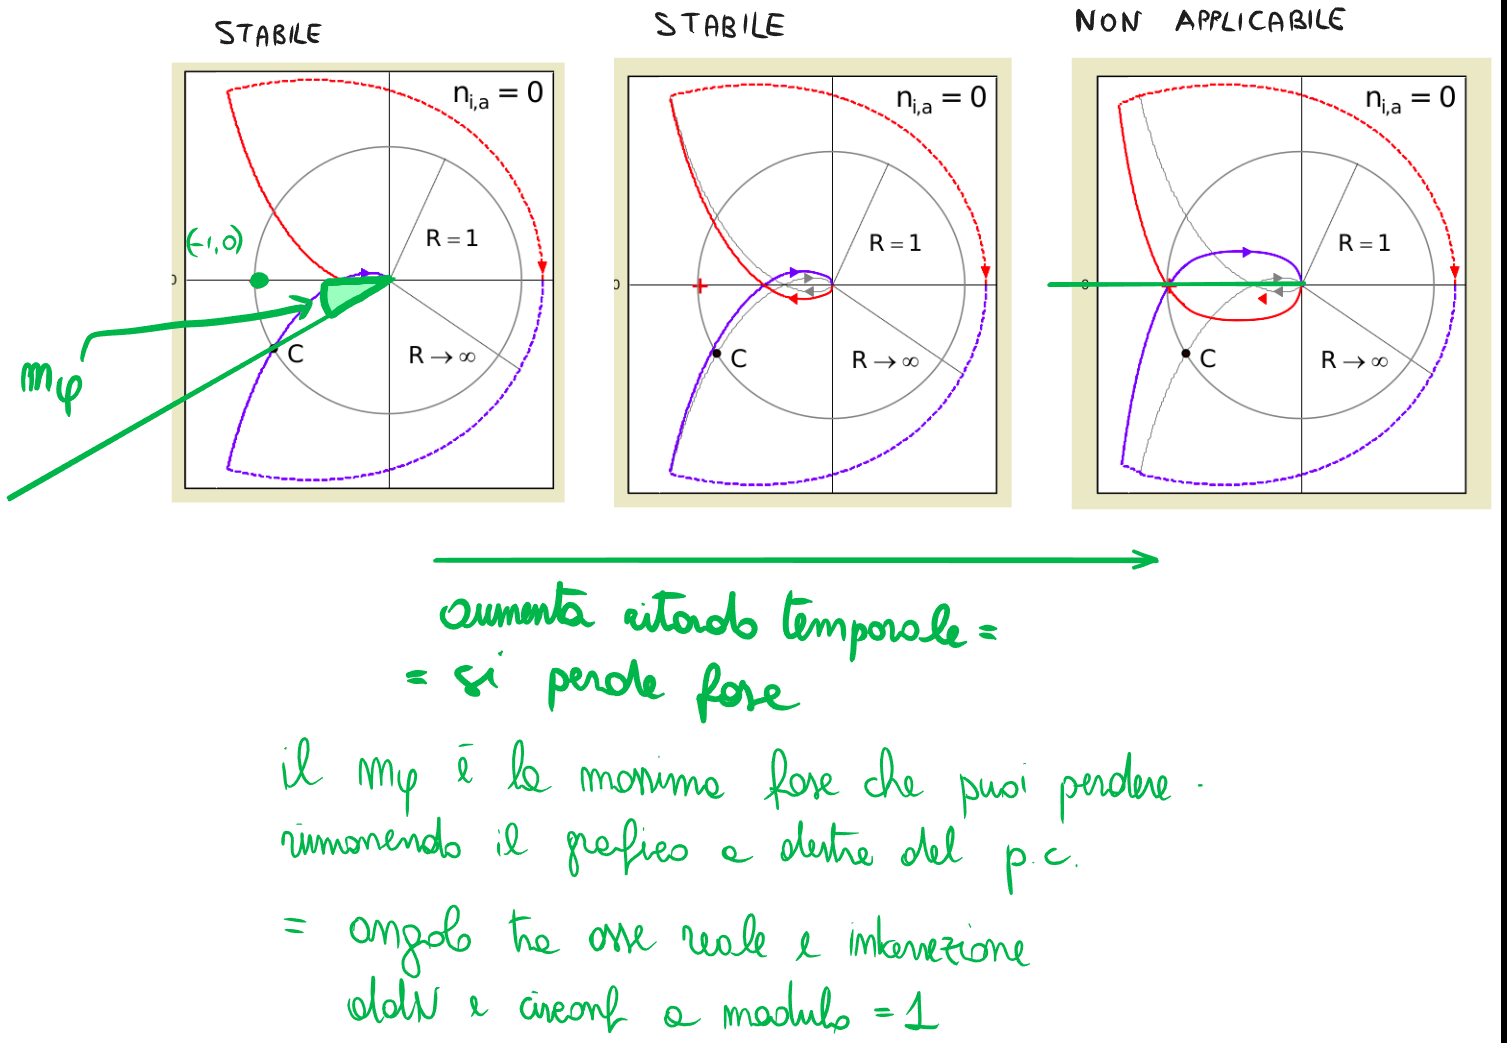 STABILE
STABILE
NON APPLICABILE
n_i,a = 0
(-1,0)
R = 1
0
mφ
C
R → ∞
n_i,a = 0
R = 1
0
C
R → ∞
n_i,a = 0
R = 1
0
C
R → ∞
aumenta ritardo temporale =
= si perde fase
il mφ è la massima fase che puoi perdere
rimanendo il grafico a destra del p.c.
= angolo tra asse reale e intersezione
ddN e circonf a modulo = 1